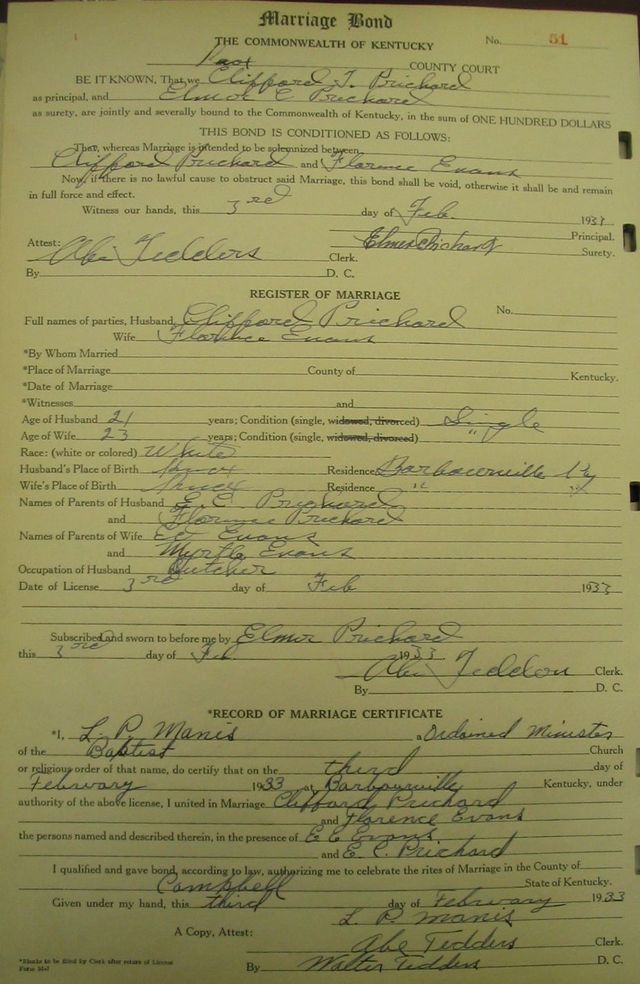 Marriage Bond
THE COMMONWEALTH OF KENTUCKY No. 51
Knox COUNTY COURT
BE IT KNOWN, That we Clifford T. Prichard
as principal, and Elmor C Prichard
as surety, are jointly and severally bound to the Commonwealth of Kentucky, in the sum of ONE HUNDRED DOLLARS
THIS BOND IS CONDITIONED AS FOLLOWS:
That, whereas Marriage is intended to be solemnized between
Clifford Prichard and Florence Evans
Now, if there is no lawful cause to obstruct said Marriage, this bond shall be void, otherwise it shall be and remain
in full force and effect.
Witness our hands, this 3rd day of Feb. 1933
Principal.
Attest: Elmer Prichard Surety.
Abe Tedders Clerk.
By D. C.
REGISTER OF MARRIAGE
No.
Full names of parties, Husband Clifford Prichard
Wife Florence Evans
*By Whom Married
*Place of Marriage County of Kentucky.
*Date of Marriage
*Witnesses and
Age of Husband 21 years; Condition (single, widowed, divorced) Single
Age of Wife 23 years; Condition (single, widowed, divorced) "
Race: (white or colored) White
Husband's Place of Birth Knox Residence Barbourville Ky
Wife's Place of Birth Knox Residence " "
Names of Parents of Husband E. C. Prichard
and Florence Prichard
Names of Parents of Wife EC Evans
and Myrtle Evans
Occupation of Husband Butcher
Date of License 3rd day of Feb 1933
Subscribed and sworn to before me by Elmor Prichard
this 3rd day of Feb 1933
Abe Teddou Clerk.
By D. C.
*RECORD OF MARRIAGE CERTIFICATE
*I, L. P. Manis a Ordained Minister
of the Baptist Church
or religious order of that name, do certify that on the third day of
February 1933 at Barbourville Kentucky, under
authority of the above license, I united in Marriage Clifford Prichard
and Florence Evans
the persons named and described therein, in the presence of E C Evans
and E. C. Prichard
I qualified and gave bond, according to law, authorizing me to celebrate the rites of Marriage in the County of
Campbell State of Kentucky.
Given under my hand, this third day of February 1933
L. P. Manis
A Copy, Attest: Abe Tedders Clerk.
By Walter Tedders D. C.
*Blanks to be filled by Clerk after return of License